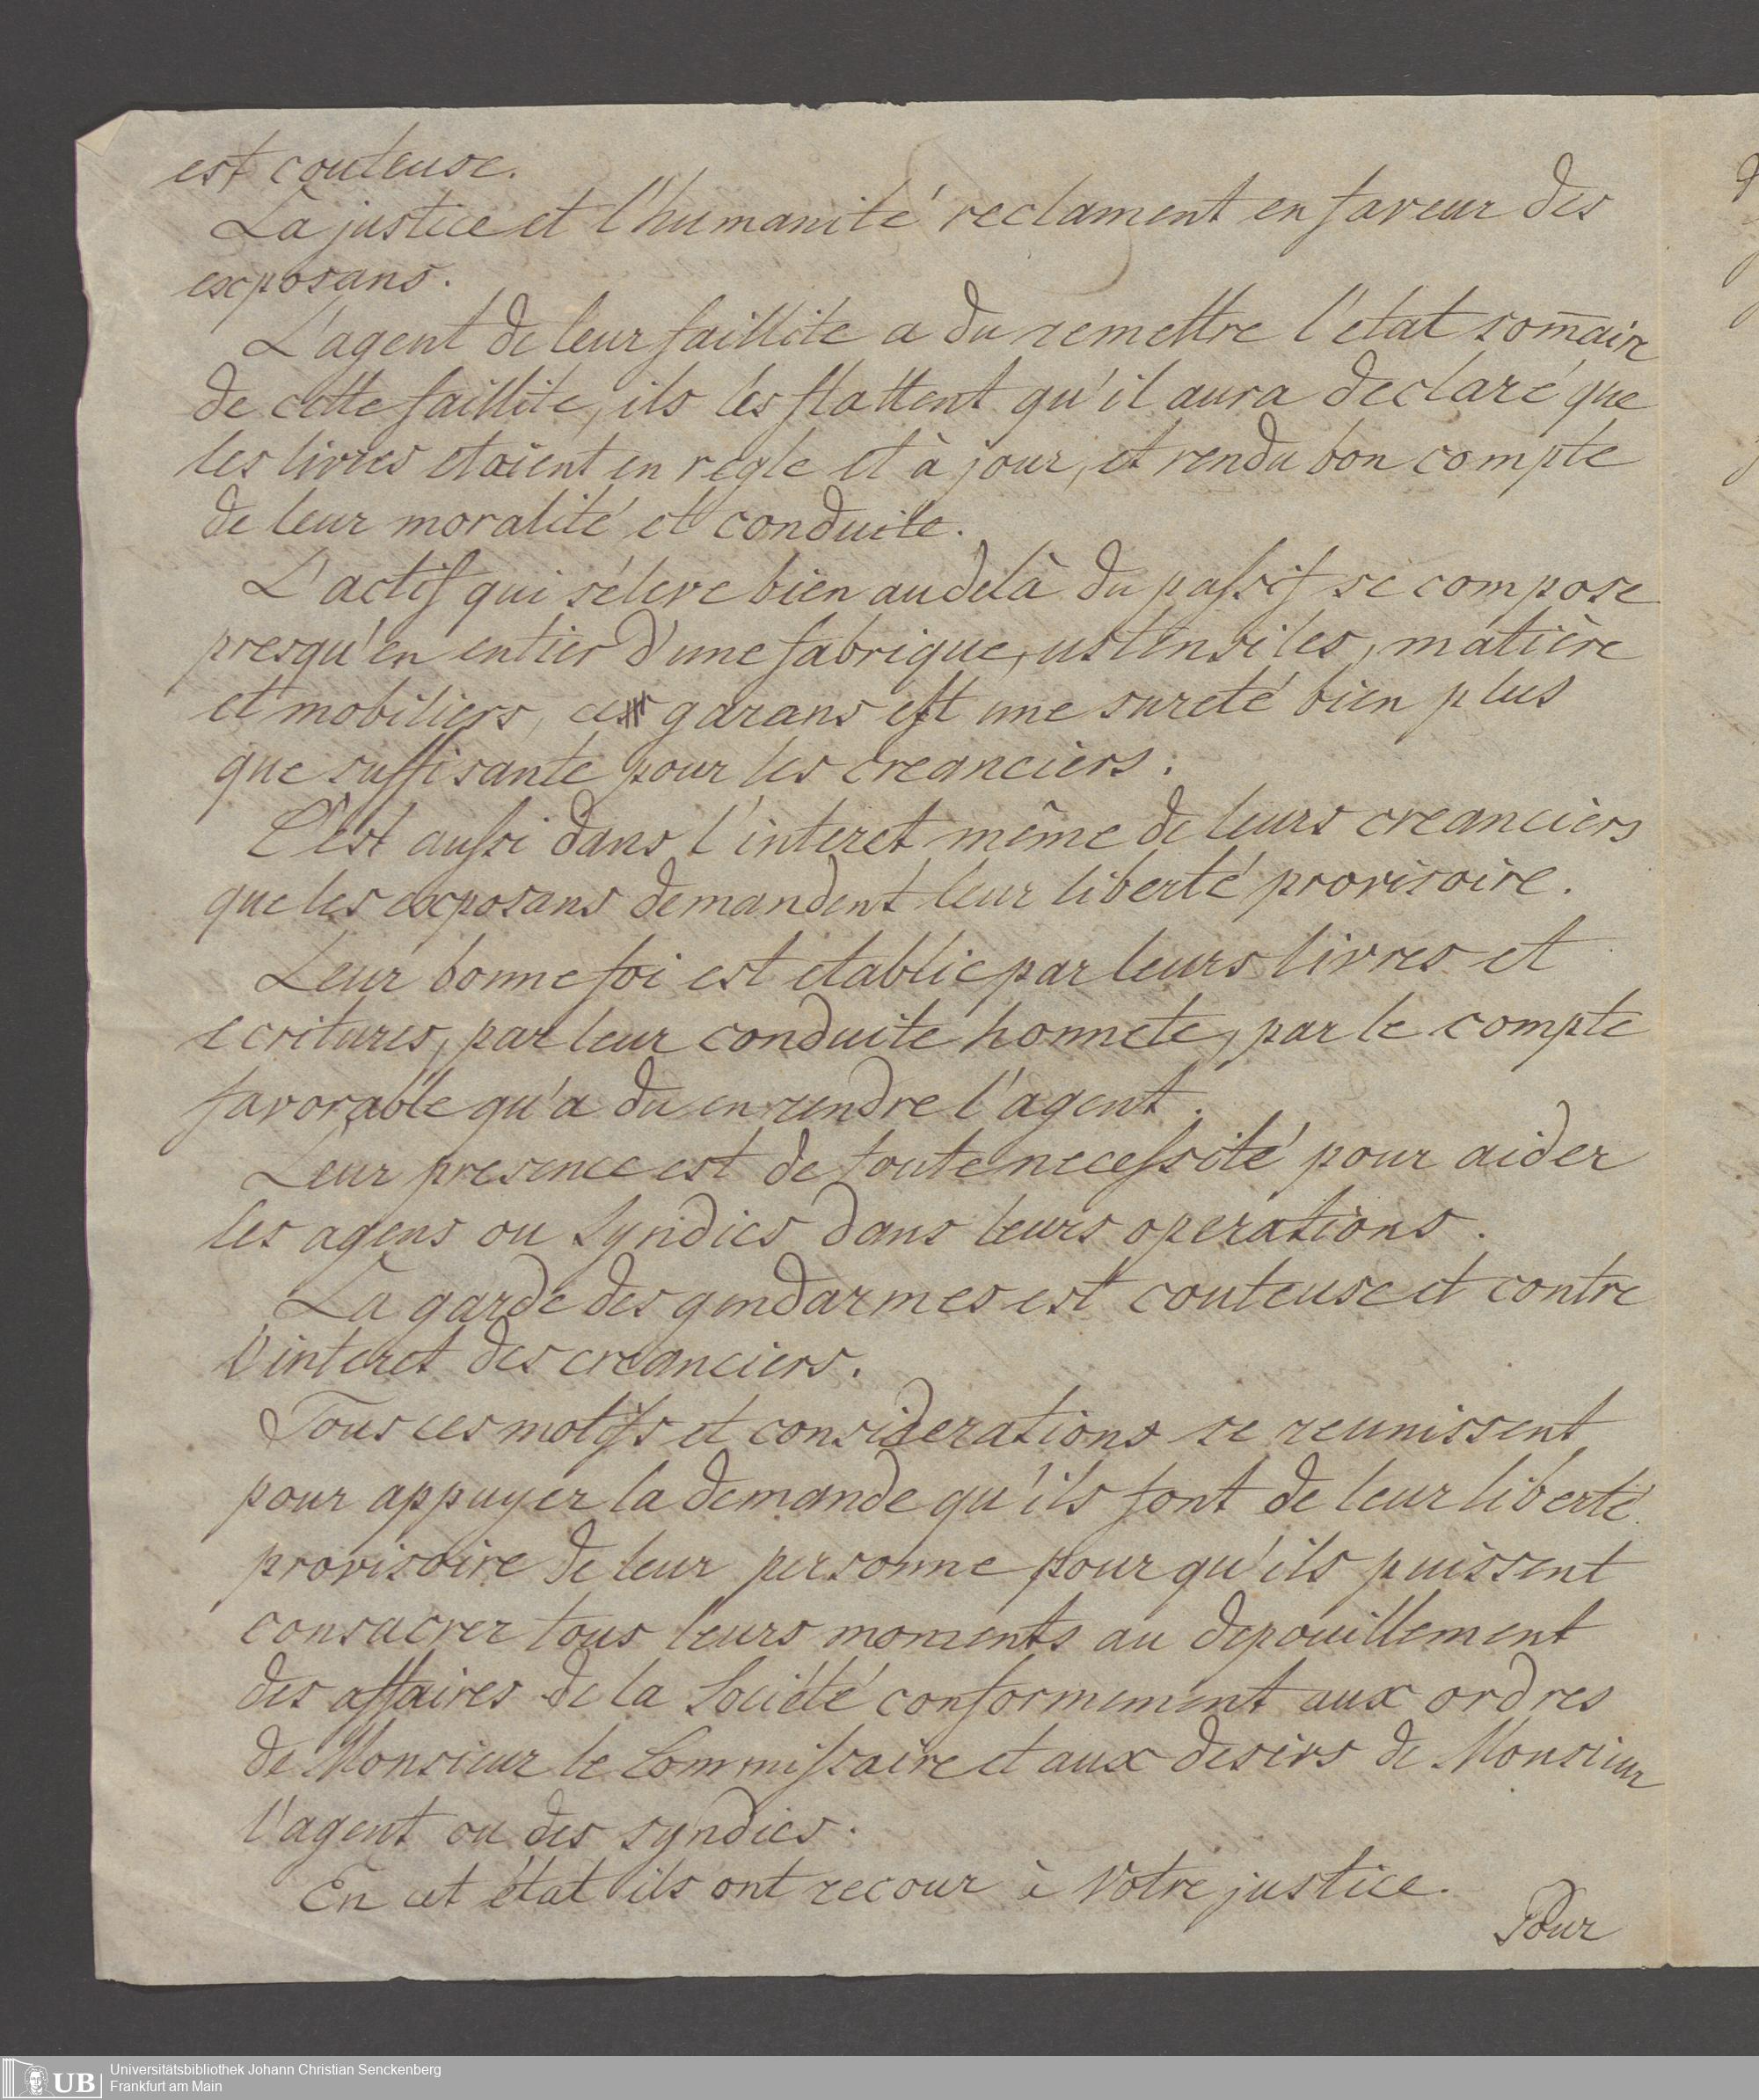 est couteuse.
La justice et l'humanité reclament en faveur des
exposans.
L'agent de leur faillite a du remettre l'etat som̄aire
de cette faillite, ils les flattent qu'il aura declaré que
les livres etoient en regle et à jour, et rendu bon compte
de leur moralité et conduite.
L'actif qui s'éleve bien au delà du passif se compose
presqu'en entier d'une fabrique, ustensiles, matière
et mobiliers, ce garans est une sureté bien plus
que suffisante pour les creanciers.
C'est aussi dans l'interet même de leurs creanciers
que les exposans demandent leur liberté provisoire.
Leur bonne foi est etablie par leurs livres et
ecritures, par leur conduite honnete, par le compte
favorable qu'a du en rendre l'agent.
Leur presence est de toute necessité pour aider
les agens ou Syndics dans leurs operations.
La garde des gendarmes est couteuse et contre
l'interet des creanciers.
Tous ces motifs et considerations se reunissent
pour appuyer la demande qu'ils font de leur liberté
provisoire de leur personne pour qu'ils puissent
consacrer tous leurs moments au depouillement
des affaires de la Société conformement aux ordres
de Monsieur le Commissaire et aux desirs de Monsieur
l'agent ou des syndics.
En cet état ils ont recour à Votre justice.
Pour
UB
Universitätsbibliothek Johann Christian Senckenberg
Frankfurt am Main